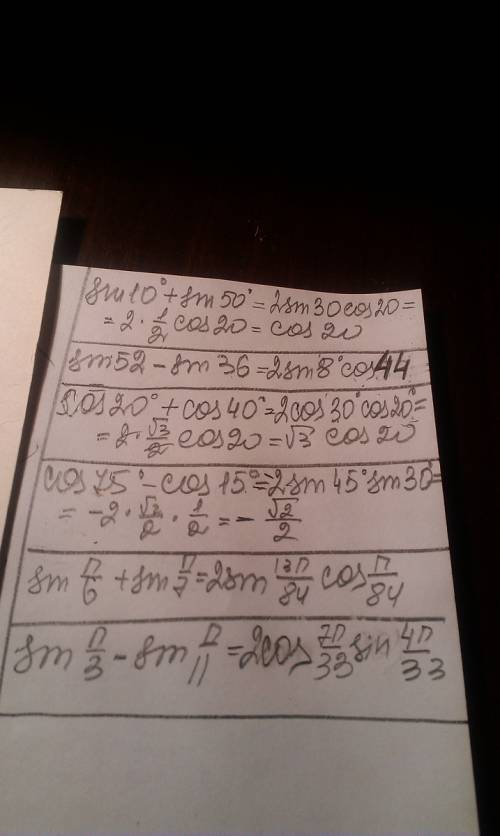 sin10° + sin50° = 2sin30cos20 =
= 2 · 1/2 cos20 = cos 20
sin52 - sin 36 = 2sin8°cos44
cos20° + cos40° = 2cos30°cos20° =
= 2 · √3/2 cos20 = √3 cos 20
cos75° - cos15° = 2sin45°sin30 =
= -2 · √2/2 · 1/2 = - √2/2
sin π/6 + sin π/7 = 2sin 13π/84 cos π/84
sin π/3 - sin π/11 = 2cos 7π/33 sin 4π/33